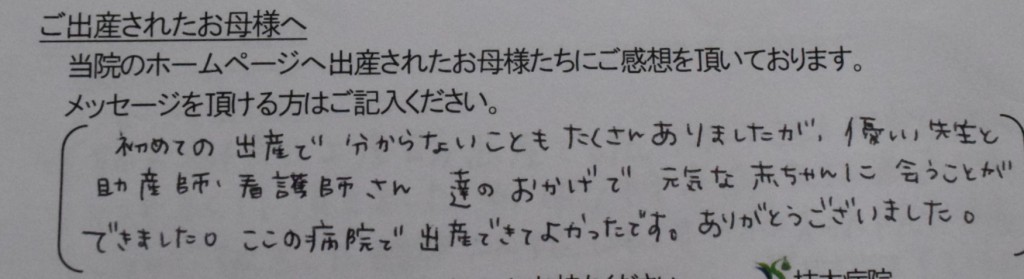 ご出産されたお母様へ
当院のホームページへ出産されたお母様たちにご感想を頂いております。
メッセージを頂ける方はご記入ください。
初めての出産で分からないこともたくさんありましたが、優しい先生と
助産師、看護師さん達のおかげで元気な赤ちゃんに会うことが
できました。ここの病院で出産できてよかったです。ありがとうございました。